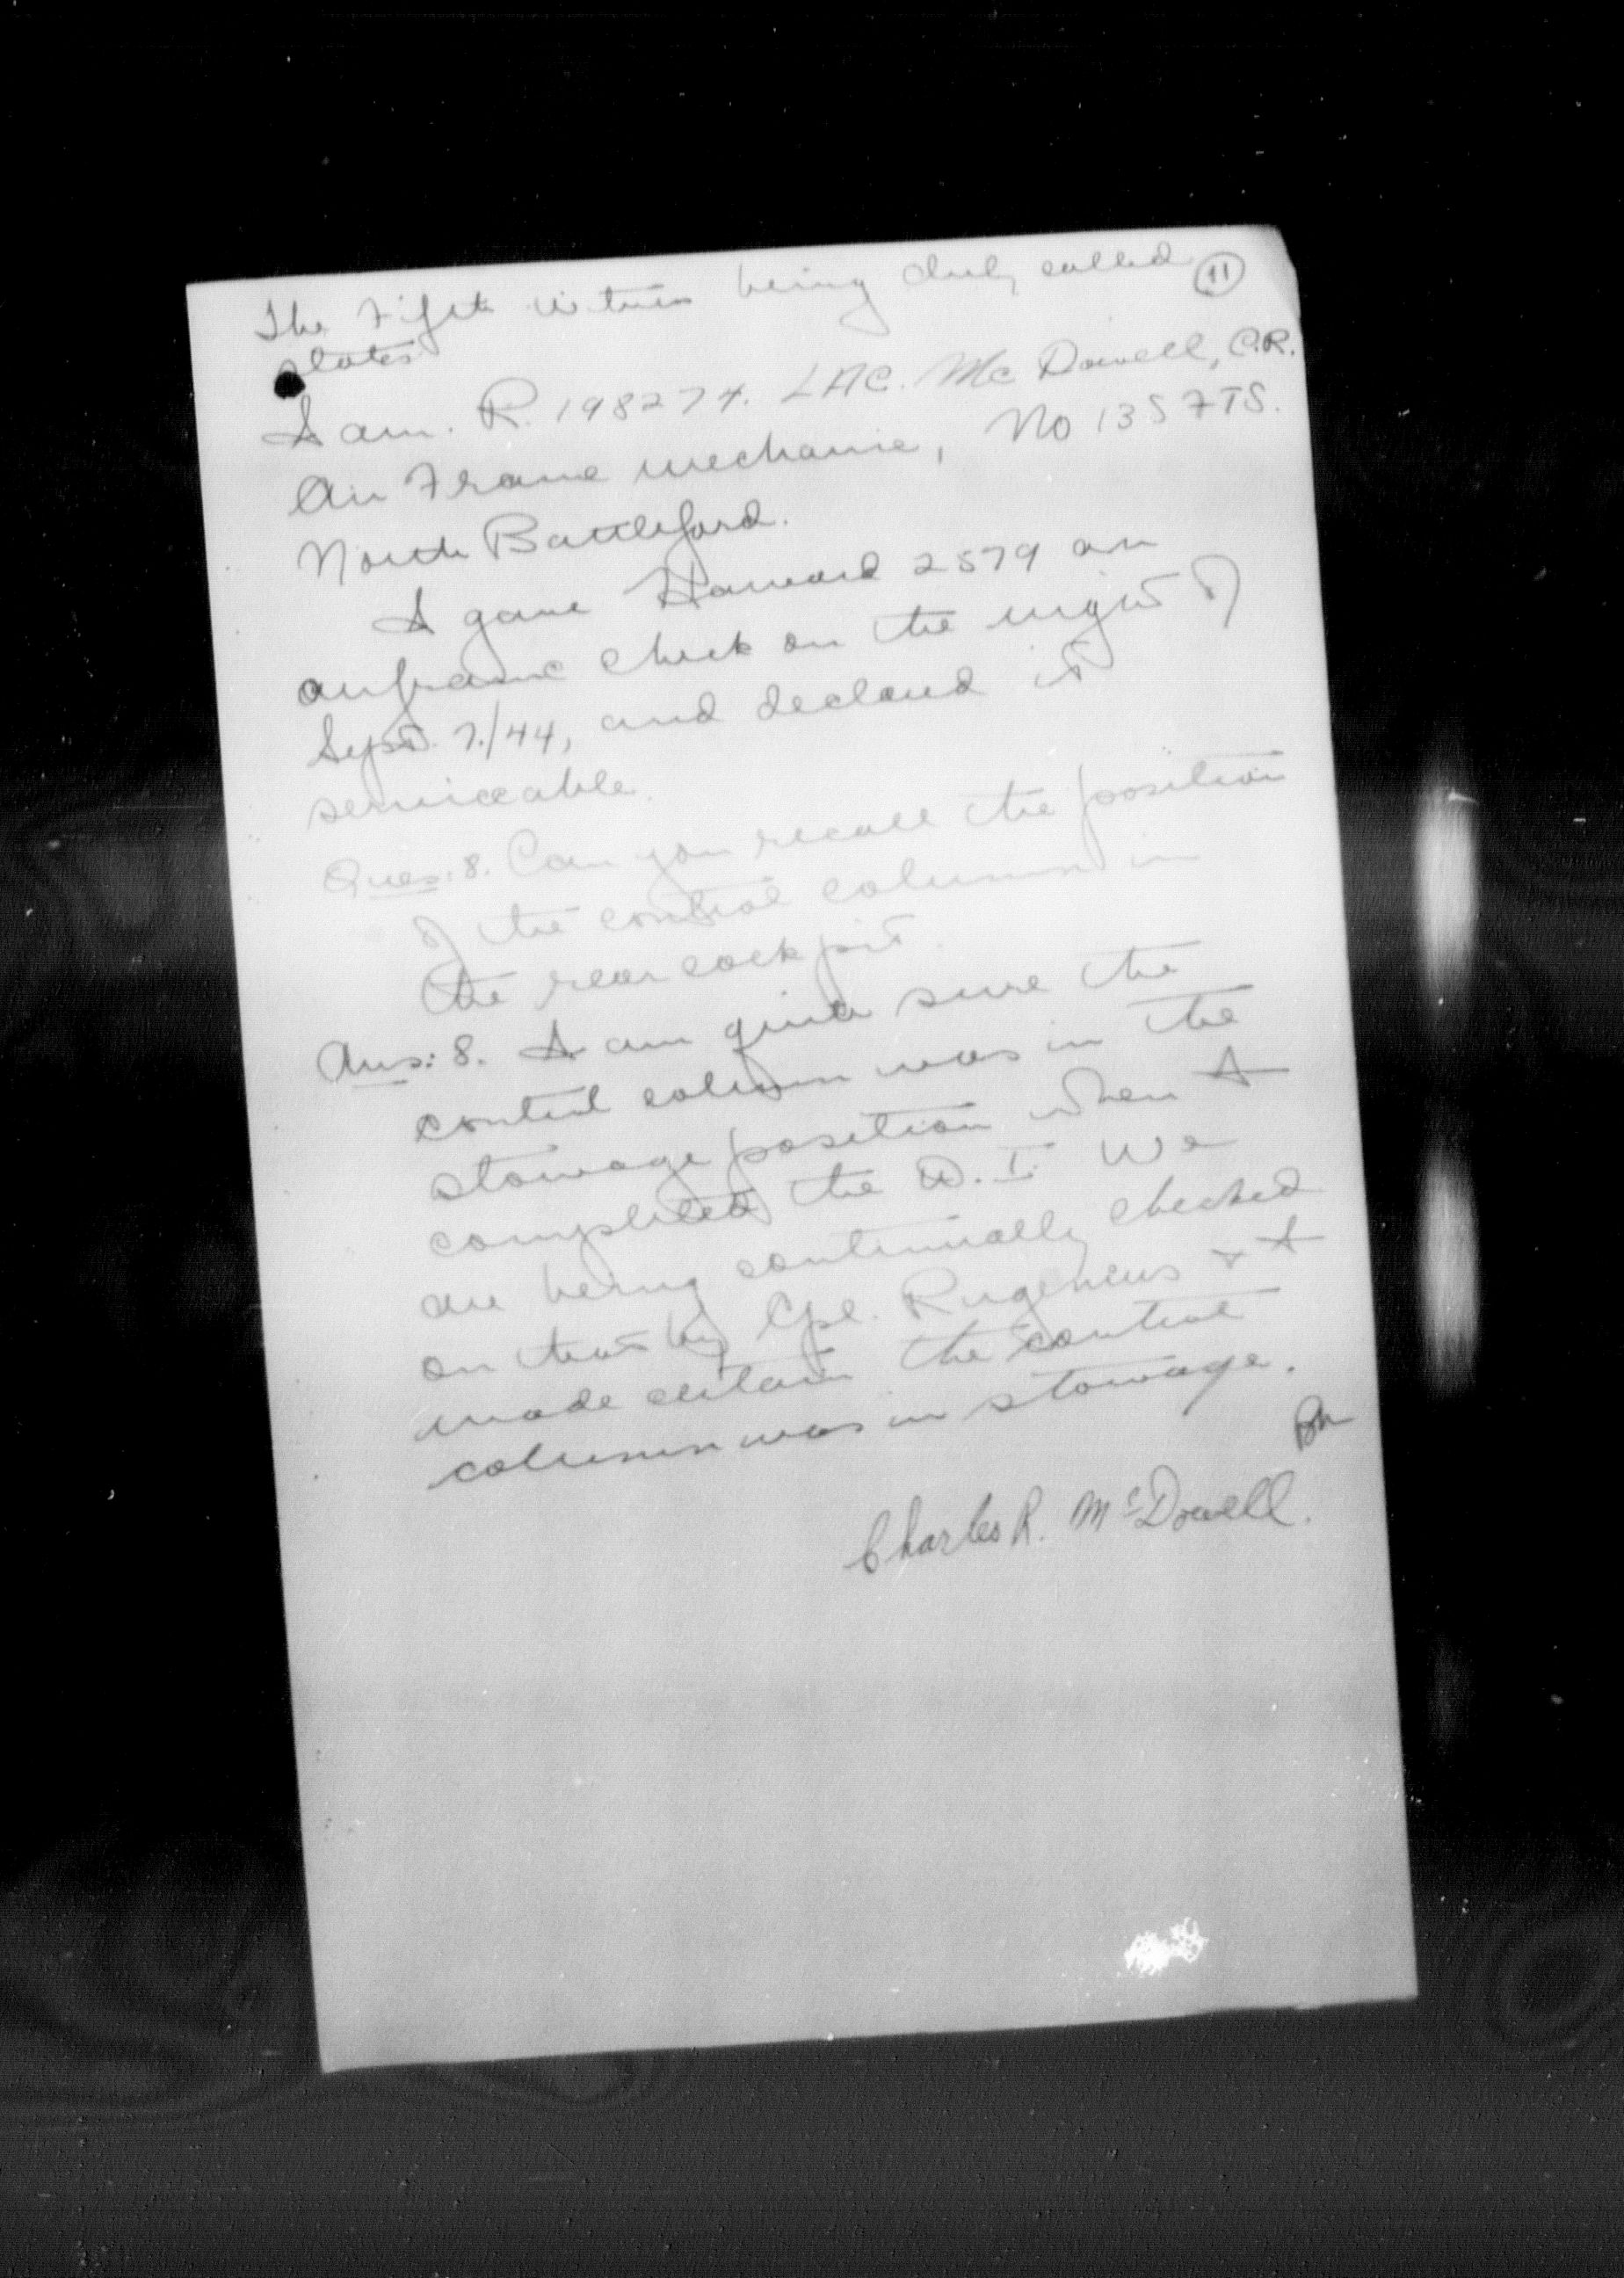 The Fifth Witness being duly called
11
states
I am. R. 198274. LAC. McDowell, C.R.
Air Frame mechanic, No 13 SFTS.
North Battleford.
I gave Harvard 2579 an
airframe check on the night of
Sept. 7./44, and declared it
serviceable.
Ques: 8. Can you recall the position
of the control column in
the rear cockpit.
Ans: 8. I am quite sure the
control column was in the
stowage position when I
completed the D.I. We
are being continually checked
on this by Cpl. Rugenius & I
made certain the control
column was in stowage.
Charles R. McDowell.